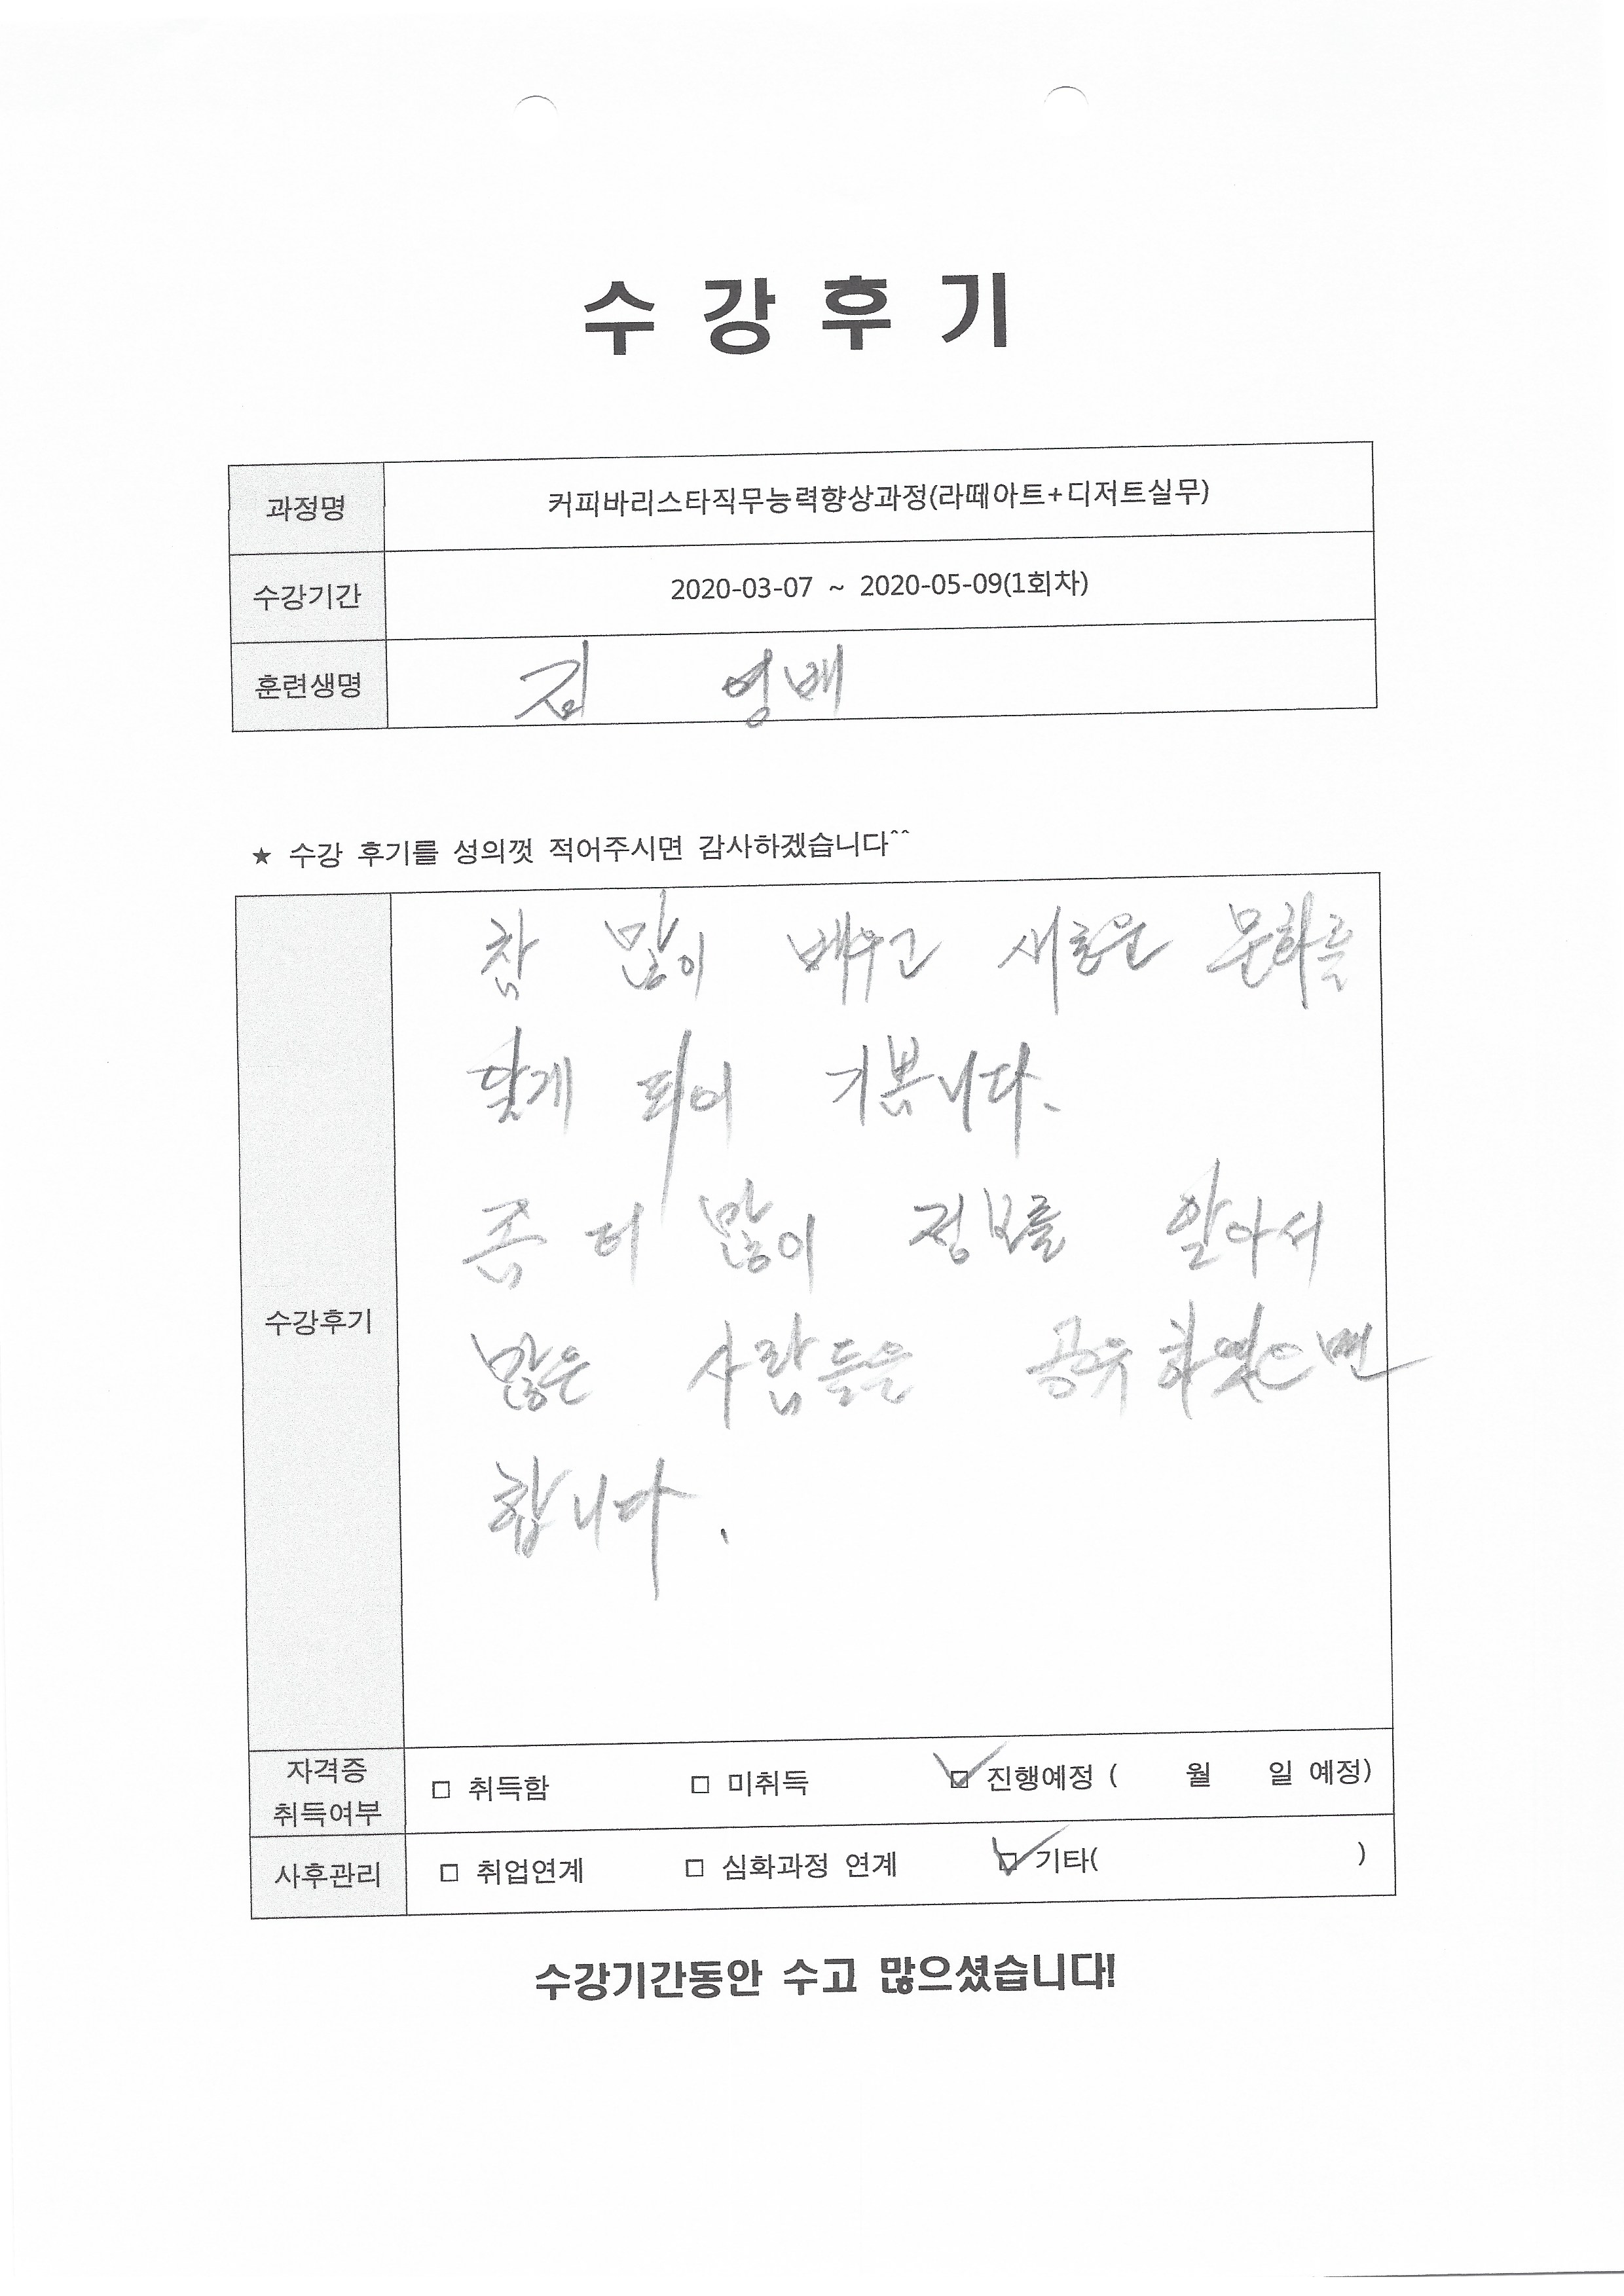 수 강 후 기
과정명 커피바리스타직무능력향상과정(라떼아트+디저트실무)
수강기간 2020-03-07 ~ 2020-05-09(1회차)
훈련생명 김 영배
★ 수강 후기를 성의껏 적어주시면 감사하겠습니다^^
수강후기
참 많이 배우고 새로운 문화를
맞게 되어 기쁩니다.
좀 더 많이 정보를 알아서
많은 사람들은 공유하였으면
합니다.
자격증 취득여부 □ 취득함 □ 미취득 ☑ 진행예정 ( 월 일 예정)
사후관리 □ 취업연계 □ 심화과정 연계 ☑ 기타( )
수강기간동안 수고 많으셨습니다!